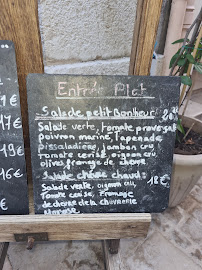 Entrée Plat
€
Salade petit Bonheur: 20€
7€
Salade verte, tomate provençal
poivron mariné, tapenade
19€
pissaladière, jambon cru
tomate cerise, oignon cru
olives fromage de chèvre
16€
Salade chèvre chaud: 18€
Salade verte, oignon cru,
Tomate cerise, fromage
9€
de chèvre de la chèvrerie